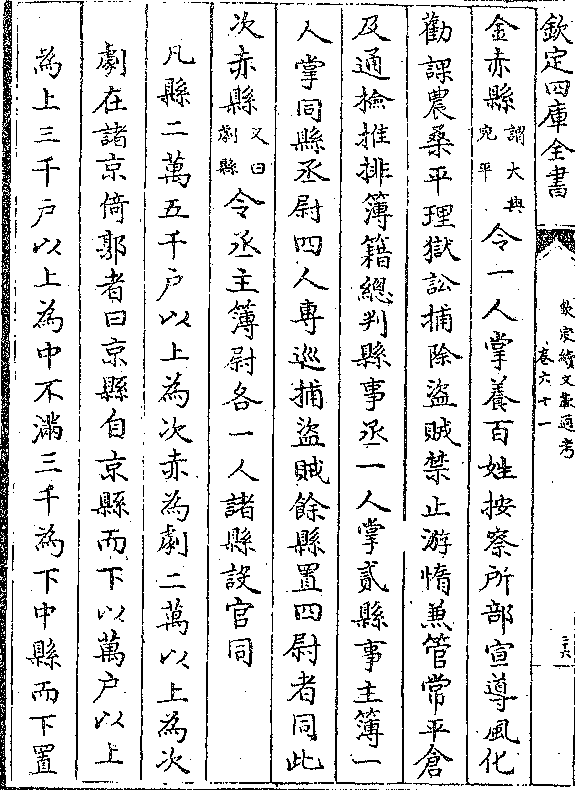 欽定四庫全書
欽定續文獻通考
卷六十一
三六
金赤縣謂大興宛平令一人掌養百姓按察所部宣導風化
勸課農桑平理獄訟捕除盜賊禁止游惰兼管常平倉
及通撿推排簿籍總判縣事丞一人掌貳縣事主簿一
人掌同縣丞尉四人專巡捕盜賊餘縣置四尉者同此
次赤縣又曰劇縣令丞主簿尉各一人諸縣設官同
凡縣二萬五千戶以上為次赤為劇二萬以上為次
劇在諸京倚郭者曰京縣自京縣而下以萬戶以上
為上三千戶以上為中不滿三千為下中縣而下置